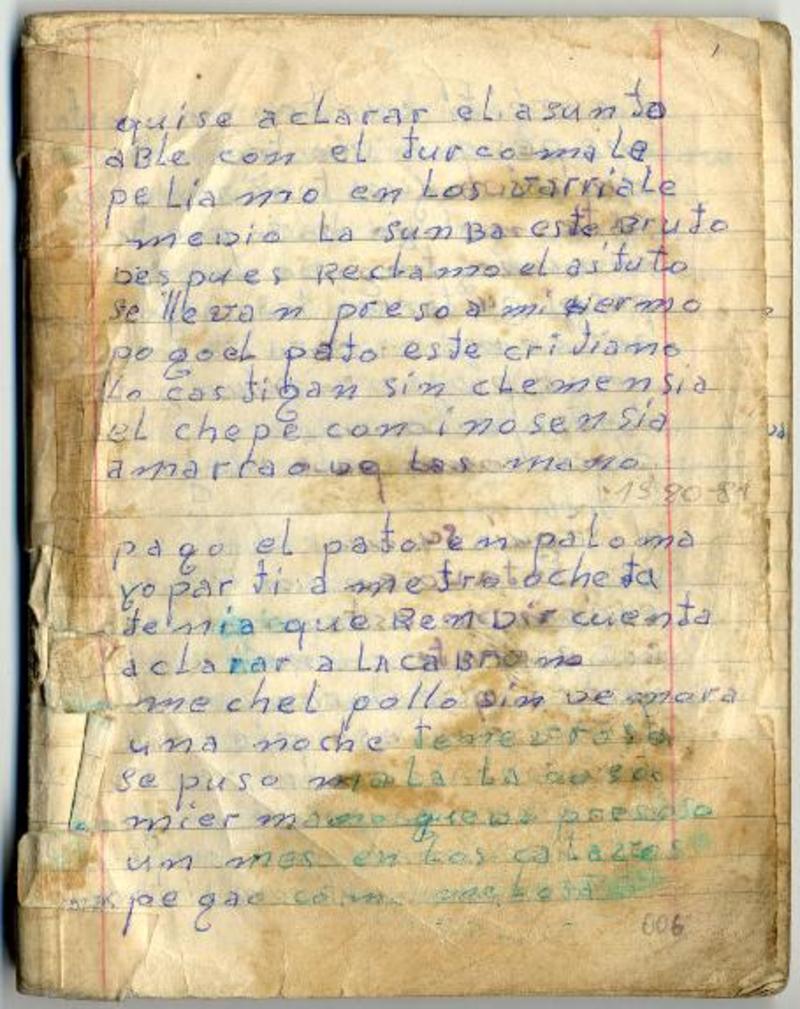 quise acLarar eL asunto
aBLe con el turco maLe
peLiamo en Los varriaLe
medio La sunBa este Bruto
Despues RecLamo el astuto
se llevan preso a mi iermo
pogoeL pato este cristiano
Lo castigan sin cLemensia
eL chepe con inosensia
amarrao Las mano
1980-81
pago eL pato en paLoma
yo parti a metrotocheta
temia que RenDir cuenta
acLarar a La
me cheL pollo sin Demora
una noche
se puso maLa La cosa
miermano queDa preso
un mes en Los
pegao
006